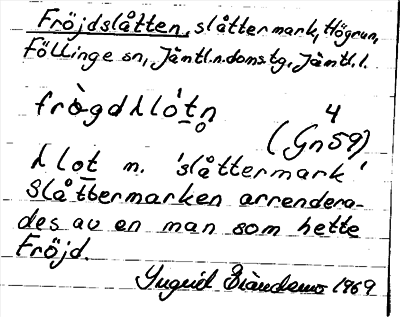 Fröjdslåtten, slåttermark, Högrun,
Föllinge sn, Jämtl.n.domstg, Jämtl.l.
frògdʌlót̲n̥ 4
(Gn59)
ʌlot̲ n. 'slåttermark'
Slåttermarken arrendera-
des av en man som hette
Fröjd.
Ingrid 1969